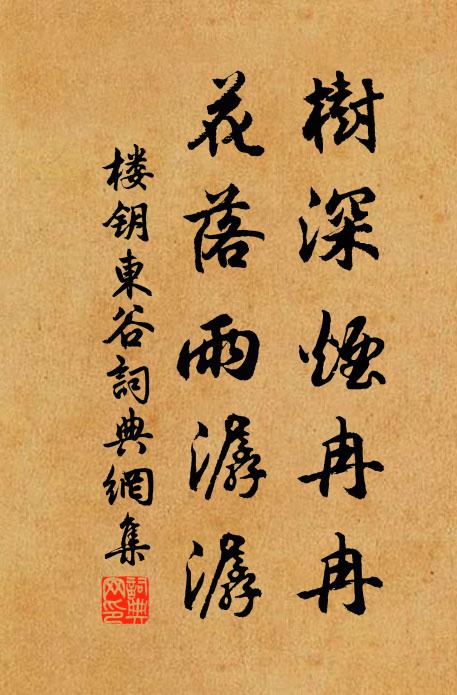 樹深煙冉冉
花落雨潺潺
楼钥東谷詞典網集
詞典網印